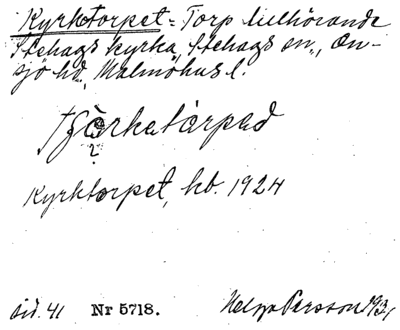 Kyrktorpet = Torp tillhörande
Stehags kyrka, Stehags sn., On-
sjö hd, Malmöhus l.
tjörkatårpad
?
Kyrktorpet, kb. 1924
sid. 41 Nr 5718. Helga Persson 1931